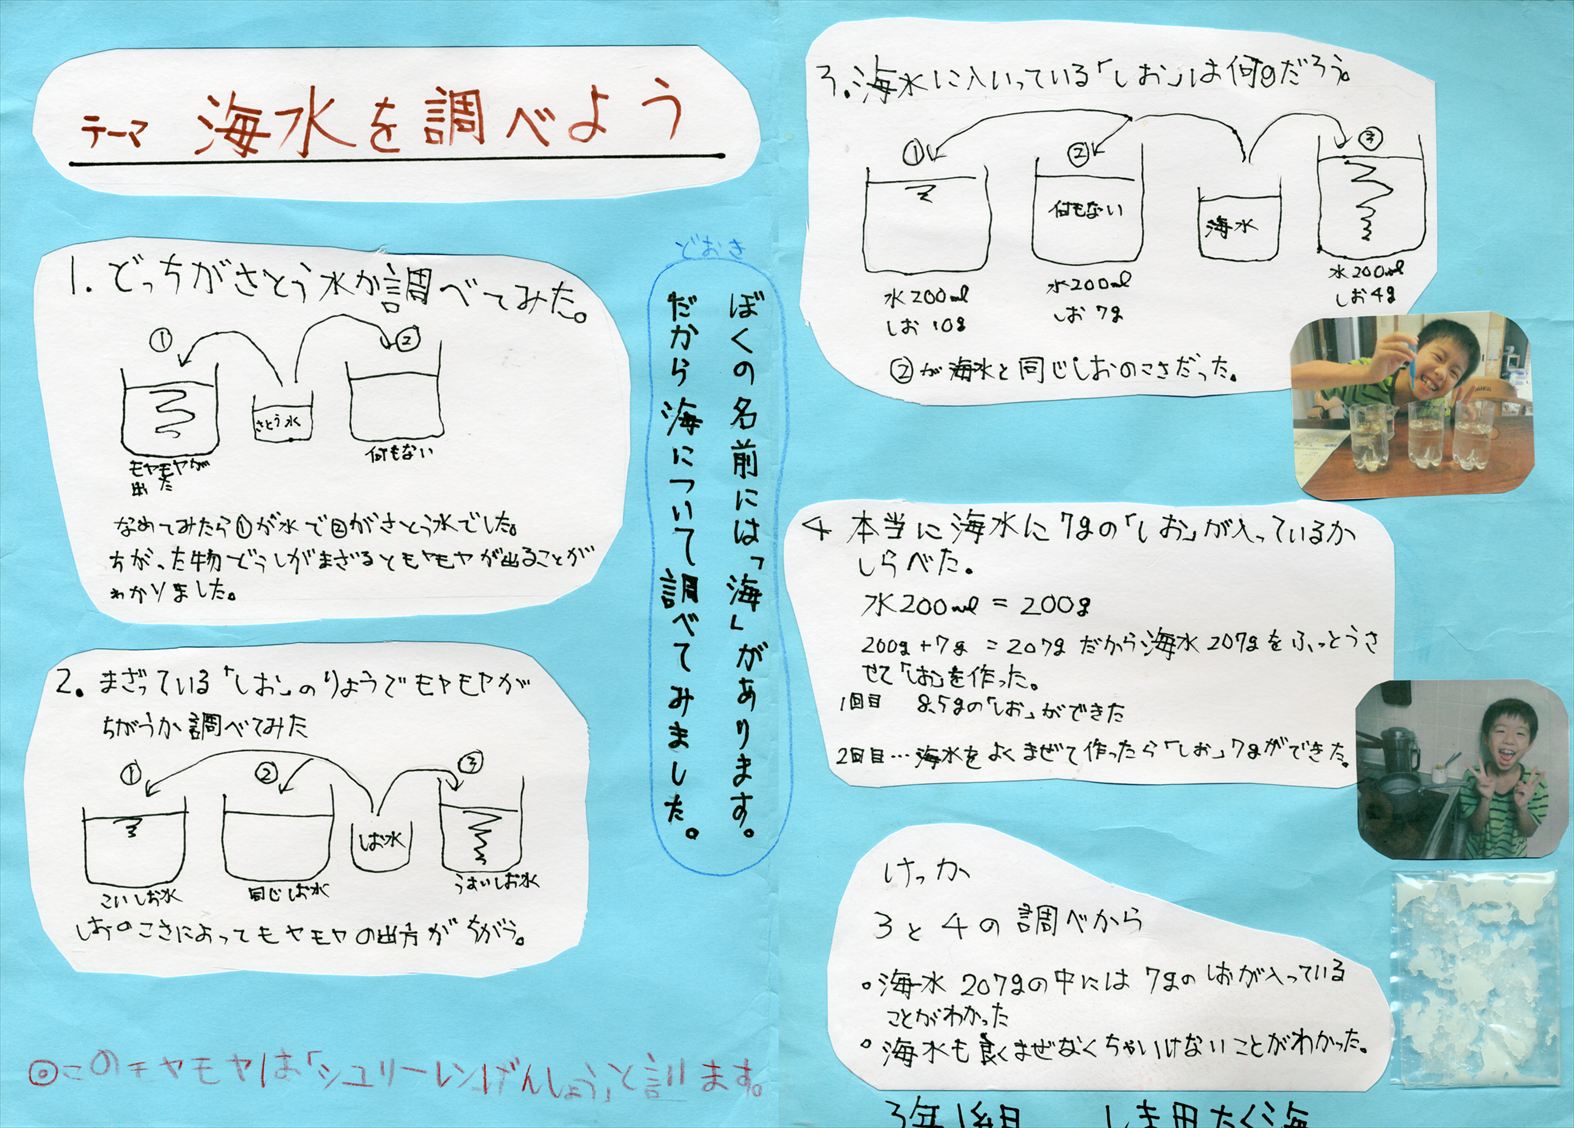 テーマ 海水を調べよう
どおき
ぼくの名前には「海」があります。
だから海について調べてみました。
1. どっちがさとう水か調べてみた。
① ②
さとう水
モヤモヤが
出た
何もない
なめてみたら①が水で②がさとう水でした。
ちがった物どうしがまざるとモヤモヤが出ることが
わかりました。
2. まざっている「しお」のりょうでモヤモヤが
ちがうか調べてみた
① ② ③
しお水
こいしお水 同じしお水 うすいしお水
しおのこさによってモヤモヤの出方がちがう。
◎このモヤモヤは「シュリーレンげんしょう」と言います。
3. 海水に入いっている「しお」は何gだろう。
① ② ③
何もない
海水
水200ml 水200ml 水200ml
しお10g しお7g しお4g
②が海水と同じしおのこさだった。
4 本当に海水に7gの「しお」が入っているか
しらべた。
水200ml = 200g
200g+7g = 207g だから海水207gをふっとうさ
せて「しお」を作った。
1回目 8.5gの「しお」ができた
2回目…海水をよくまぜて作ったら「しお」7gができた。
けっか
3と4の調べから
。海水207gの中には7gのしおが入っている
ことがわかった
。海水も良くまぜなくちゃいけないことがわかった。
3年1組